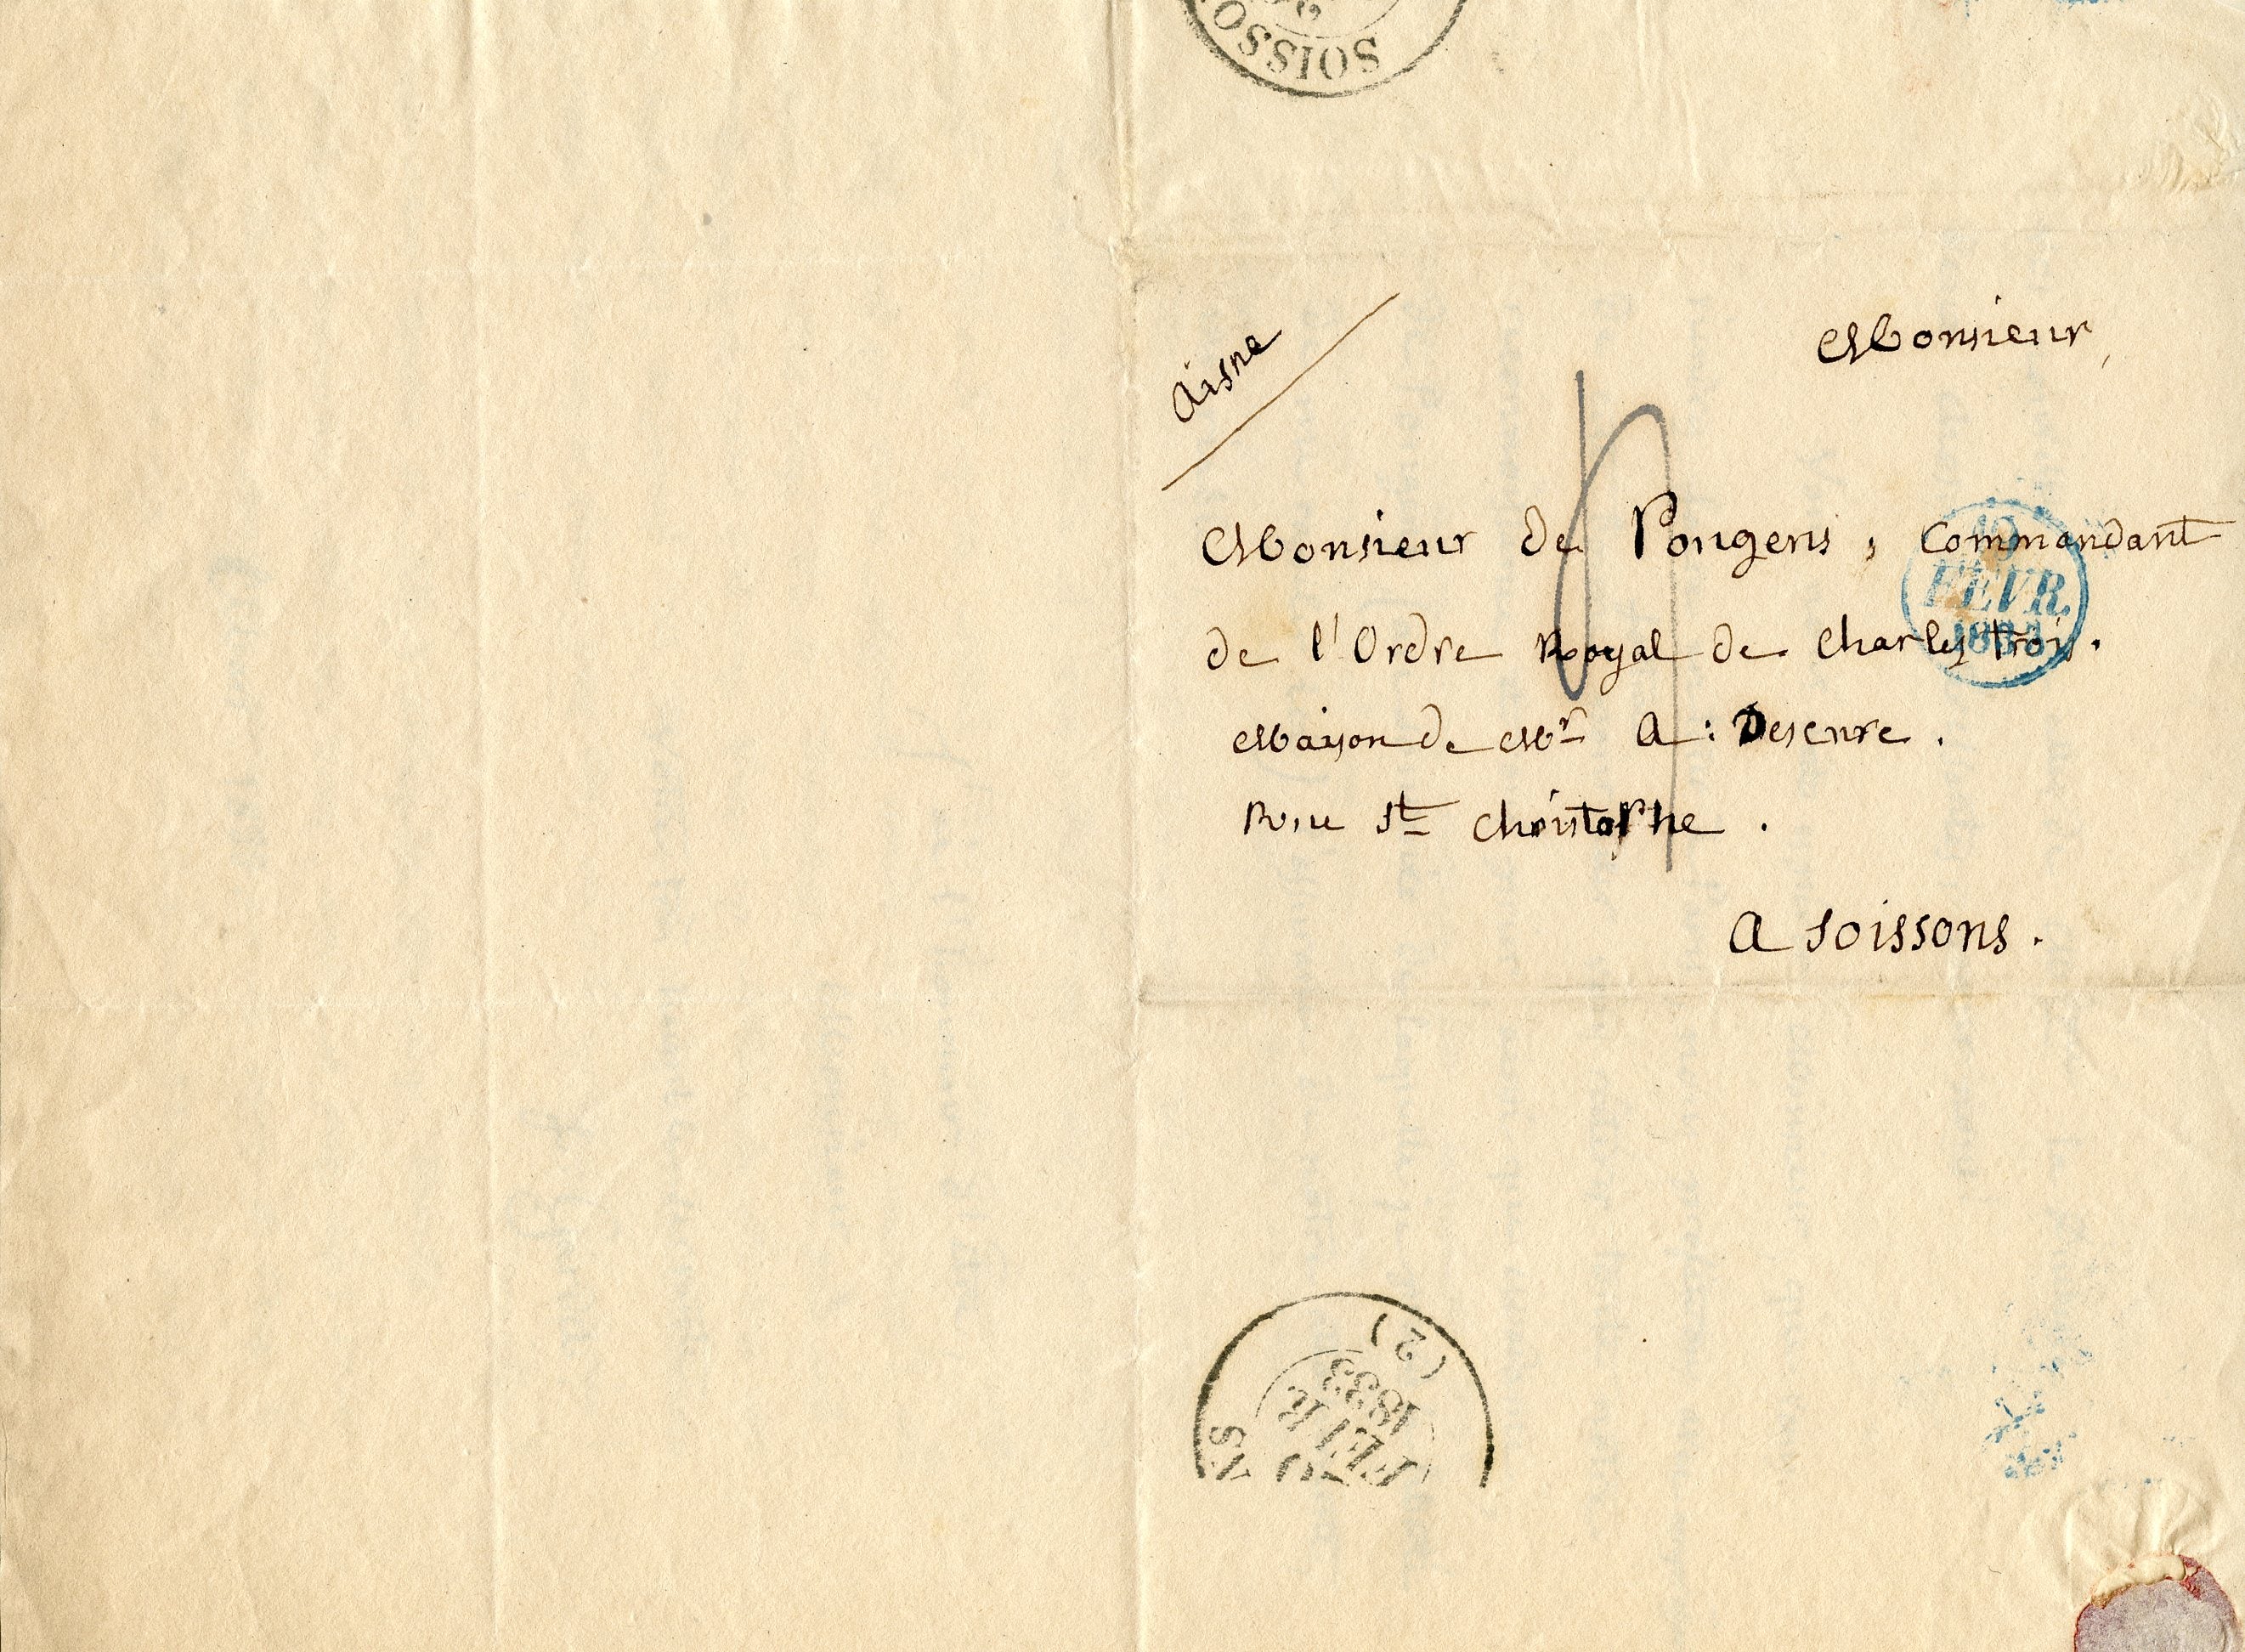 SOISSO
Aisne
Monsieur,
Monsieur de Pougens, Commandant
de l'Ordre Royal de Charles trois.
Maison de Mr A: Deseure.
Rue St Christophe.
A Soissons.
19
FEVR.
1833
(2)
1833
FEVR
NS